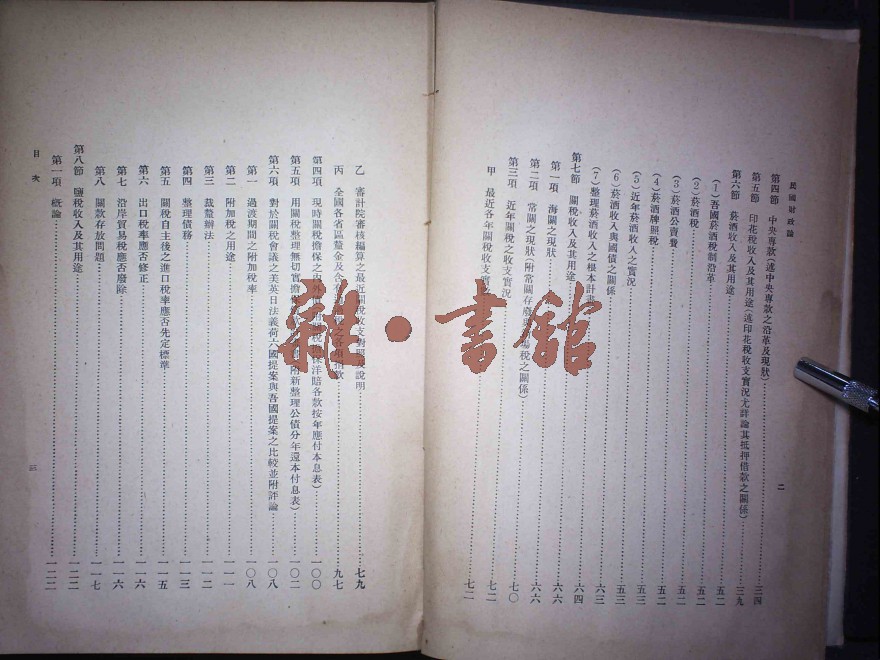 民國財政論
二
第四節 中央專款(述中央專款之沿革及現狀)……三四
第五節 印花稅收入及其用途(述印花稅收支實況尤詳論其抵押借款之關係)……三九
第六節 菸酒收入及其用途……五二
(1)吾國菸酒稅制沿革……五二
(2)菸酒稅……五二
(3)菸酒公賣費……五二
(4)菸酒牌照稅……五二
(5)近年菸酒收入之實況……五三
(6)菸酒收入與國債之關係……五三
(7)整理菸酒收入之根本計畫……六三
第七節 關稅收入及其用途……六四
第一項 海關之現狀……六六
第二項 常關之現狀(附常關存廢與 場稅之關係)……六六
第三項 近年關稅之收支實況……七〇
甲 最近各年關稅收支實況……七二
乙 審計院審核編算之最近關稅收支對照及說明……七九
丙 全國各省區釐金及 之各項捐款……九七
第四項 現時關稅擔保之內外 洋賠各款按年應付本息表)……一〇〇
第五項 用關稅整理無切實擔保 附新整理公債分年還本付息表)……一〇二
第六項 對於關稅會議之美英日法義荷六國提案與吾國提案之比較並附評論……一〇八
第一 過渡期間之附加稅率……一〇八
第二 附加稅之用途……一一一
第三 裁釐辦法……一一二
第四 整理債務……一一三
第五 關稅自主後之進口稅率應否先定標準……一一五
第六 出口稅率應否修正……一一六
第七 沿岸貿易稅應否廢除……一一六
第八 關款存放問題……一一七
第八節 鹽稅收入及其用途……一二二
第一項 概論……一二二
目次
三
雜·書館